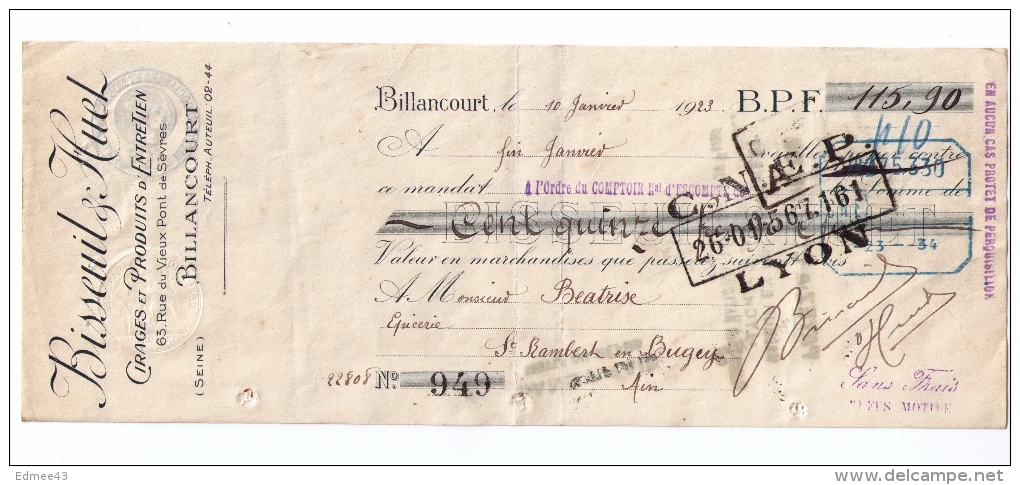 Bisseuil & Huet
CIRAGES ET PRODUITS D'ENTRETIEN
63, Rue du Vieux Pont de Sèvres
BILLANCOURT
(SEINE) TÉLÉPH. AUTEUIL 02-44
Billancourt, le 10 Janvier 1923 B.P.F. 115,90
A fin Janvier
ce mandat
à l'Ordre du COMPTOIR Nal d'ESCOMPTE
somme de
BISSEUIL
Cent quinze
Valeur en marchandises que passerez suivant avis
A Monsieur Beatrise
Epicerie
St Rambert en Bugey
Ain
22808 No 949
410
C.N.E.P.
LYON
23--34
Sans Frais
MOTIVE
EN AUCUN CAS PROTET DE PERQUISITION
Edmee43
delcampe.net